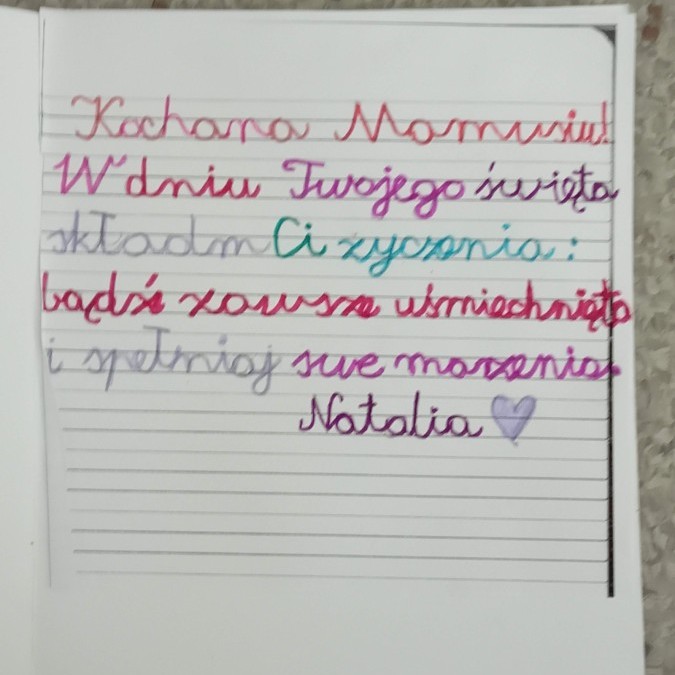 Kochana Mamusiu!
W dniu Twojego święta
składm Ci zyczenia:
bądź zawsze uśmiechnięta
i spełniaj swe marzenia.
Natalia